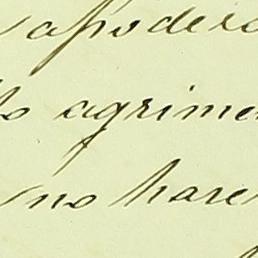 apodera
lo agrime
no hare